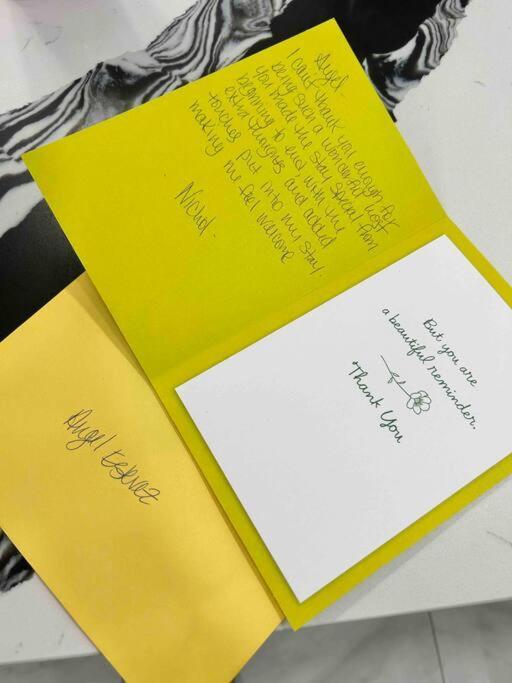 Angel
I can't thank you enough for
being such a wonderful host
You made the stay special from
beginning to end, with the
extra thoughts and added
touches put into my stay.
making me feel welcome
Nichol.
But you are
a beautiful reminder.
Thank You
Angel